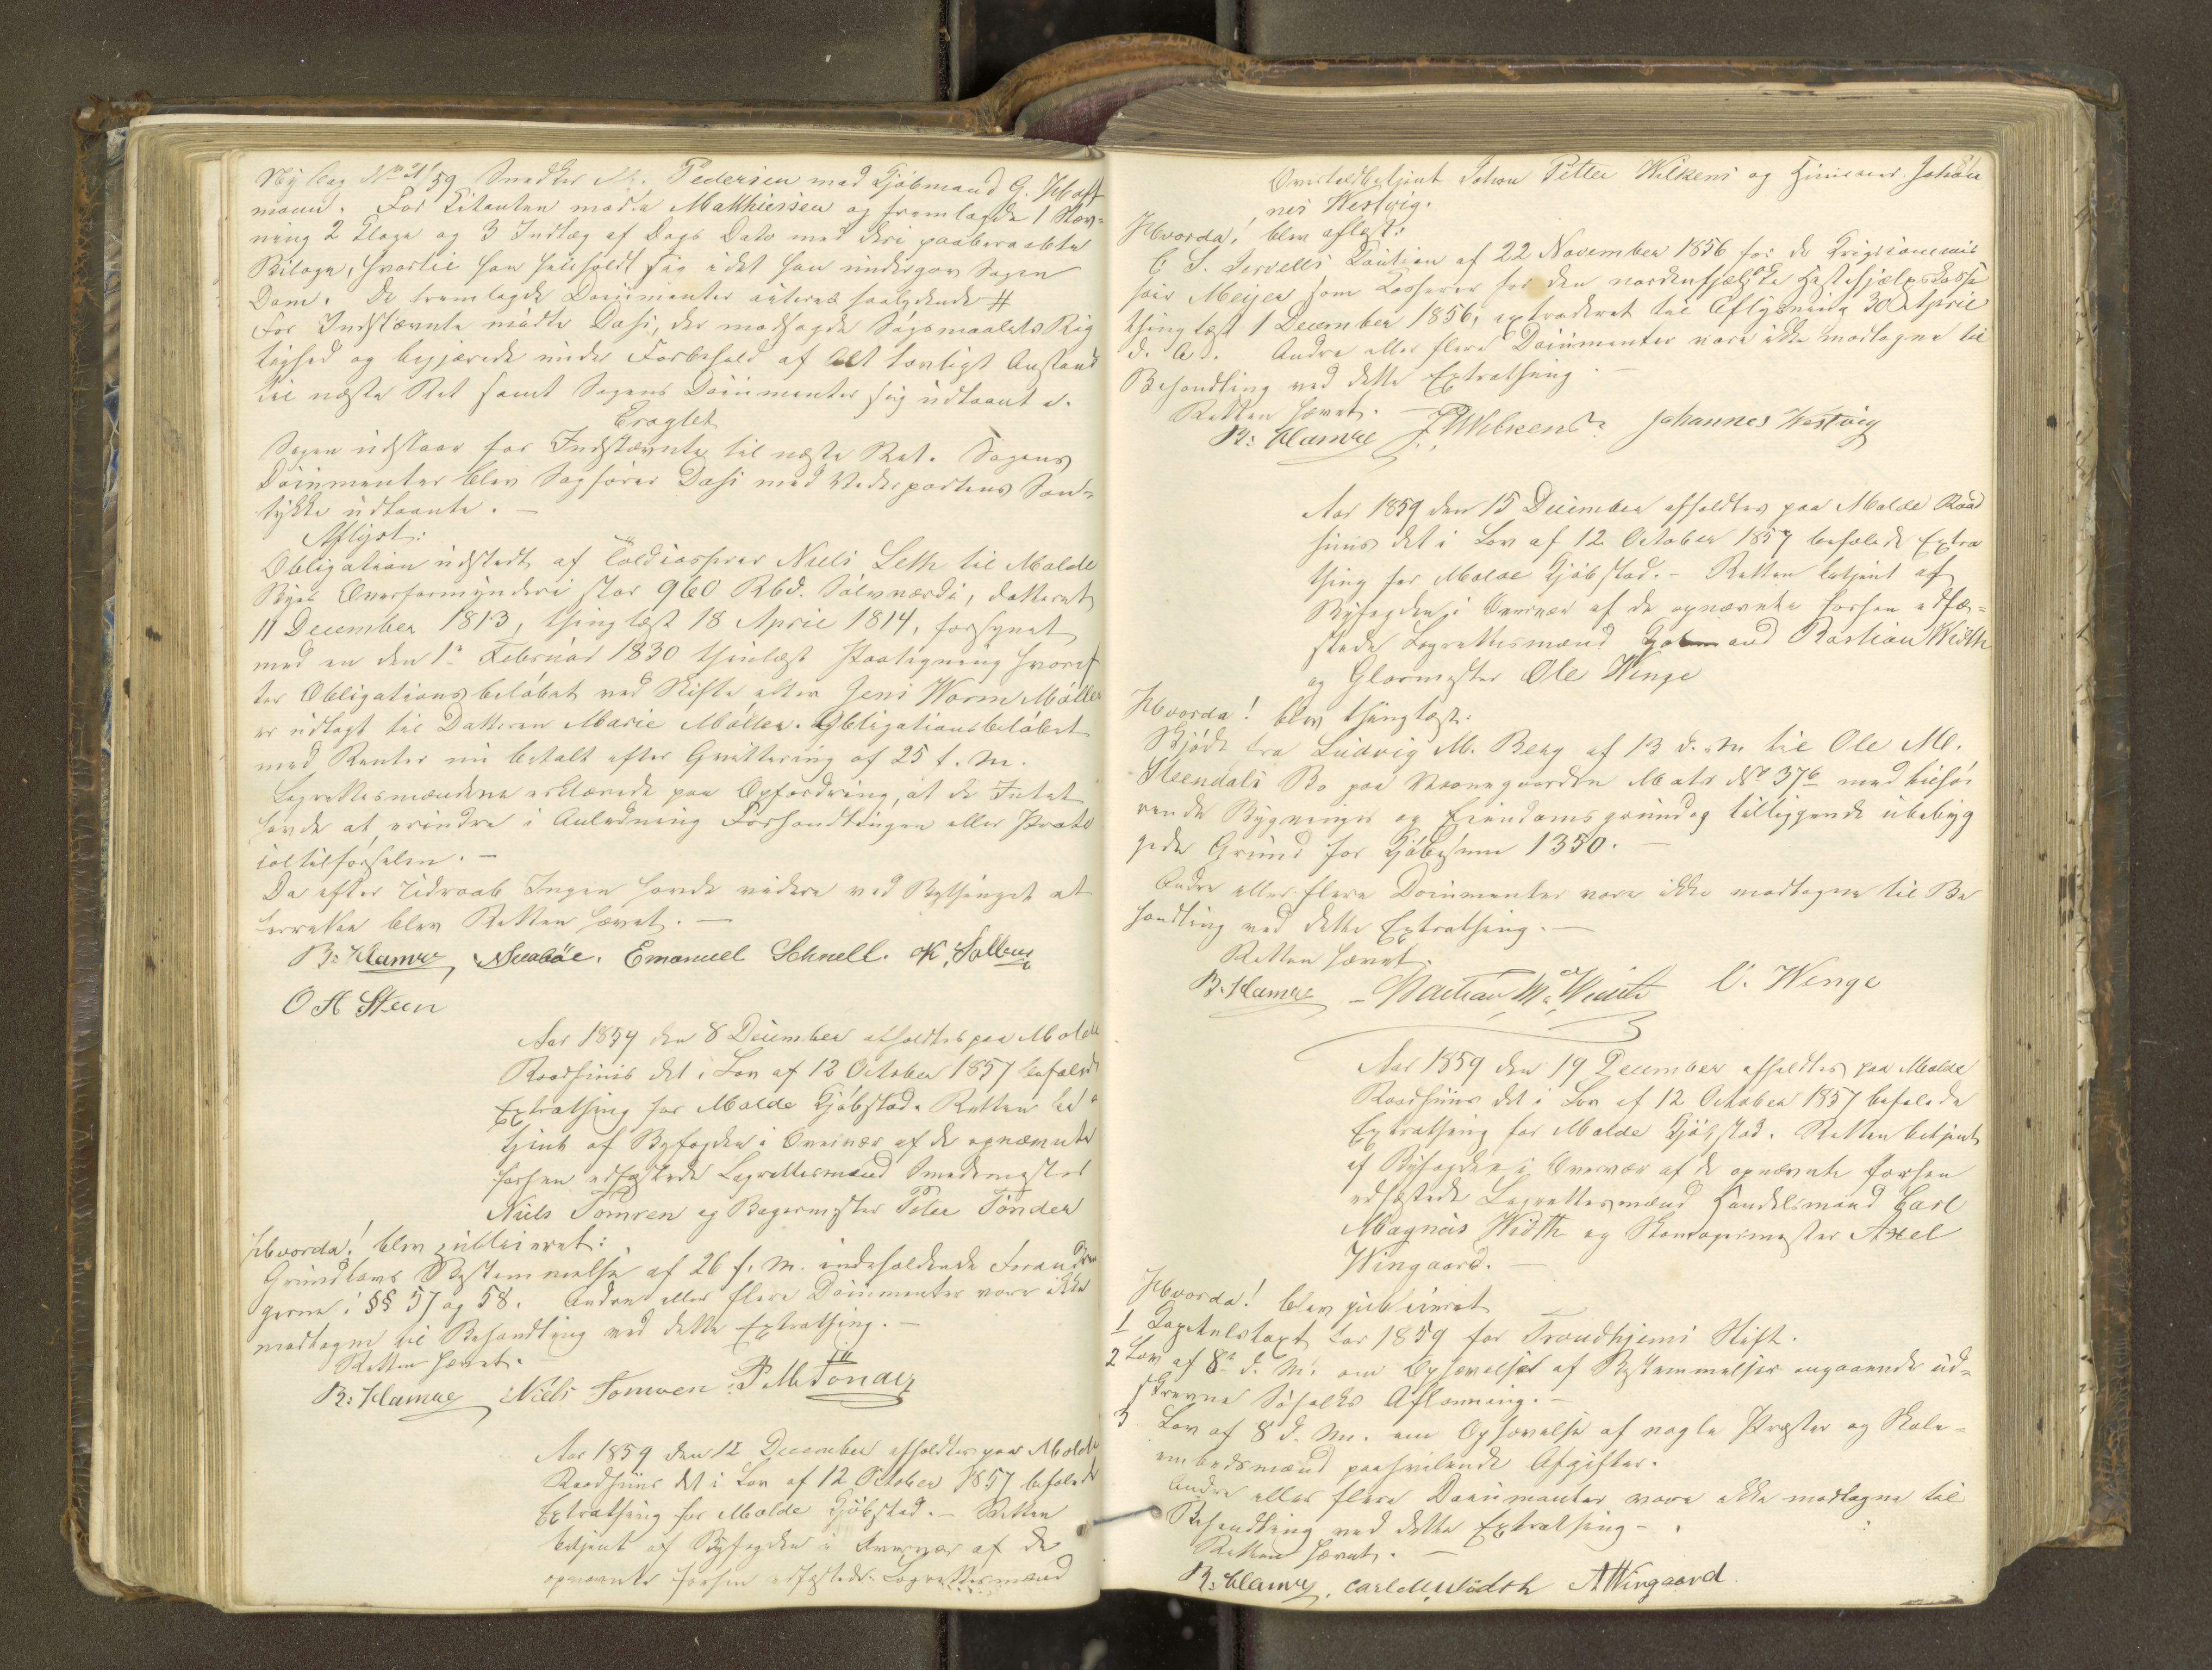 Ny Sag No 21/59 Snedker N. Pedersen mod Kjöbmand G. Hoff
mann. For Citanten mødte Matthiessen og fremlagde 1 Stev-
ning 2 Klage og 3 Indlæg af Dags Dato med deri paaberaabte
Bilage, hvortil han henholdt sig idet han undergav Sagen
Dom. De fremlagde Documenter lyde saaledes #
For Indstævnte mødte Dass, der modsagde Søgsmaalets Rig
tighed og begjærede under Forbehold af Alt lovligt Anstand
til næste Ret samt Sagens Documenter sig udlaante.
Eragtet
Sagen udstaar for Indstævnte til næste Ret. Sagens
Documenter blev Sagfører Dass med Vederpartens Sam-
tykke udlaante. —
Aflyst:
Obligation udstedt af Toldkasserer Niels Leth til Molde
Byes Overformynderi stor 960 Rbd. Sølvværdi, dateret
11 December 1813, thinglæst 18 April 1814, forsynet
med en den 1ste Februar 1830 thinlæst Paategning hvoref
ter Obligationsbeløbet ved Skifte efter Jens Worm Møller
er udlagt til Datteren Marie Møller. Obligationsbeløbet
med Renter nu betalt efter Qvittering af 25 f. M.
Lagrettesmændene erklærede paa Opfordring, at de Intet
havde at erindre i Anledning Forhandlingen eller Proto
coltilførselen. —
Da efter Udraab Ingen havde videre ved Bythinget at
foretage blev Retten hævet. —
B: Hamre Emanuel Schnell.
O H Steen
Aar 1859 den 8 December afholdtes paa Molde
Raadhuus det i Lov af 12 October 1857 befalede
Extrathing for Molde Kjøbstad. Retten be
tjent af Byfogden i Overvær af de opnævnte
forhen edfæstede Lagrettesmænd Smedemester
Niels Tomren og Bagermester Peter Tønder
Hvorda! blev publiceret:
Grundlovs Bestemmelse af 26 f. M. indeholdende Forandrin
gerne i §§ 57 og 58. Andre eller flere Documenter vare ikke
modtagne til Behandling ved dette Extrathing. —
Retten hævet.
B: Hamre Niels Tomren P M Tönder
Aar 1859 den 12 December afholdtes paa Molde
Raadhuus det i Lov af 12 October 1857 befalede
Extrathing for Molde Kjøbstad. — Retten
betjent af Byfogden i Overvær af de
opnævnte forhen edfæstede Lagrettesmænd
Overtoldbetjent Johan Petter Wilkens og Johan
nes Westvig.
Hvorda! blev aflæst:
Caution af 22 November 1856 for
Meyer som Kasserer for den nordenfjeldske
thinglæst 1 December 1856, extraderet til Aflysning 30 April
d. A. Andre eller flere Documenter vare ikke modtagne til
Behandling ved dette Extrathing. —
Retten hævet.
B: Hamre J P Wilkens Johannes Westvig
Aar 1859 den 15 December afholdtes paa Molde Raad
huus det i Lov af 12 October 1857 befalede Extra
thing for Molde Kjøbstad. — Retten betjent af
Byfogden i Overvær af de opnævnte forhen edfæ-
stede Lagrettesmænd Bastian Width
og Glarmester Ole Winge
Hvorda! blev thinglæst:
Skjøde fra Ludvig M. Berg af 13 d. M. til Ole M.
Steendals Bo paa Matr No 37b med tilhø
rende Bygninger og Eiendomsgrund og tilliggende ubebyg
gede Grund for Kjøbesum 1350. —
Andre eller flere Documenter vare ikke modtagne til Be
handling ved dette Extrathing. —
Retten hævet.
B: Hamre Bastian M. Width O. Winge
Aar 1859 den 19 December afholdtes paa Molde
Raadhuus det i Lov af 12 October 1857 befalede
Extrathing for Molde Kjøbstad. Retten betjent
af Byfogden i Overvær af de opnævnte forhen
edfæstede Lagrettesmænd Handelsmand Carl
Magnus Width og Axel
Wingaard. —
Hvorda! blev publiceret
1 Capitelstaxt for 1859 for Trondhjems Stift.
2 Lov af 8de d. M. om Ophævelse af Bestemmelser angaaende ud-
skrevne Søfolks Aflønning. —
3 Lov af 8 d. M. om Ophævelse af nogle Præster og Skole-
embedsmænd paahvilende Afgifter.
Andre eller flere Documenter vare ikke modtagne til
Behandling ved dette Extrathing —.
Retten hævet. —
B: Hamre. Carl M Width A Wingaard